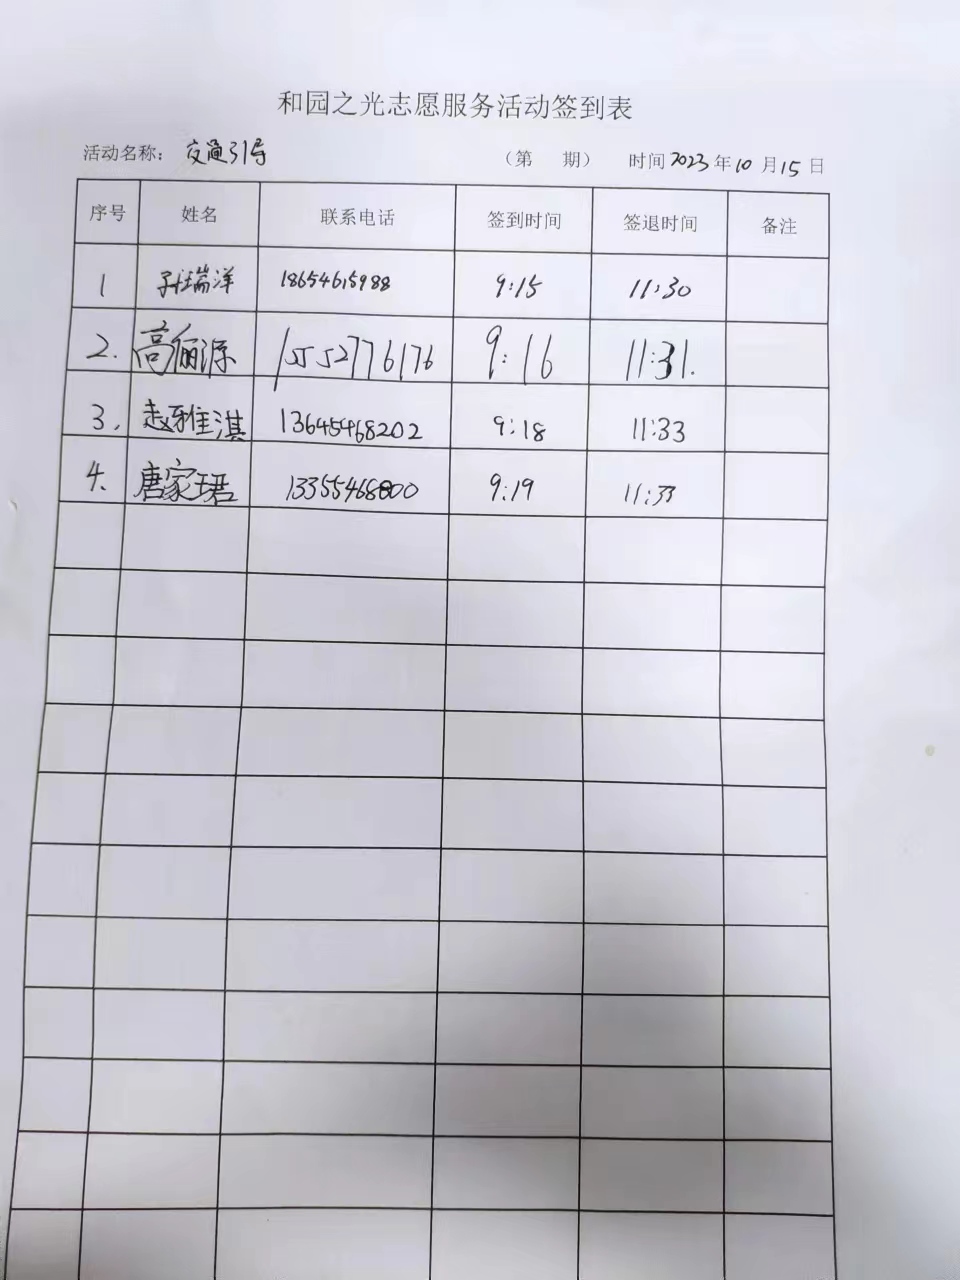 和园之光志愿服务活动签到表
活动名称： 交通引导 （第 期） 时间 2023 年 10 月 15 日
序号 姓名 联系电话 签到时间 签退时间 备注
1 孙瑞洋 18654615988 9:15 11:30
2. 高俪源 15552776176 9:16 11:31.
3. 赵雅淇 13645468202 9:18 11:33
4. 唐家珺 13355468800 9:19 11:33